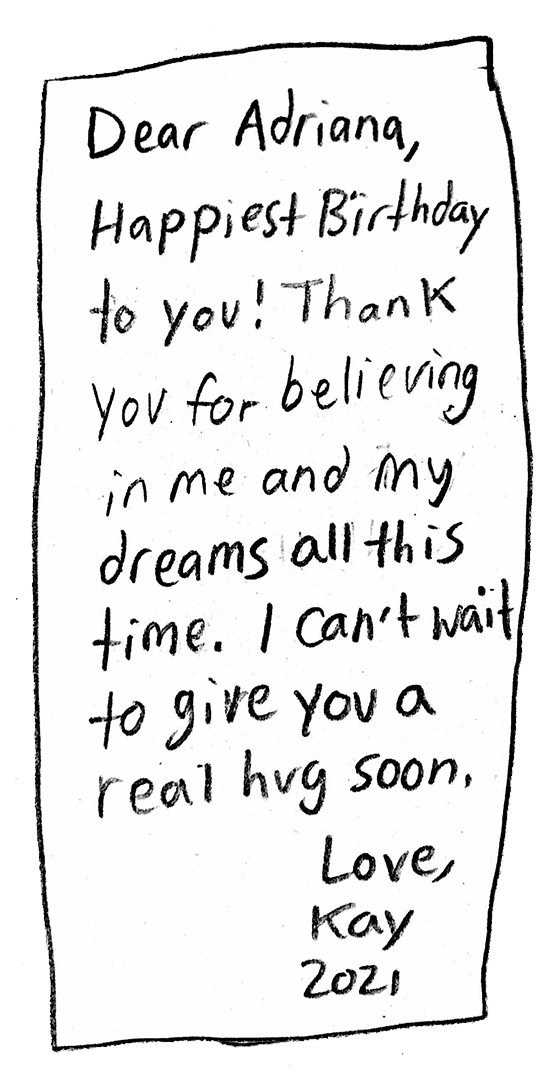 Dear Adriana,
Happiest Birthday
to you! Thank
you for believing
in me and my
dreams all this
time. I can't wait
to give you a
real hug soon.
Love,
Kay
2021